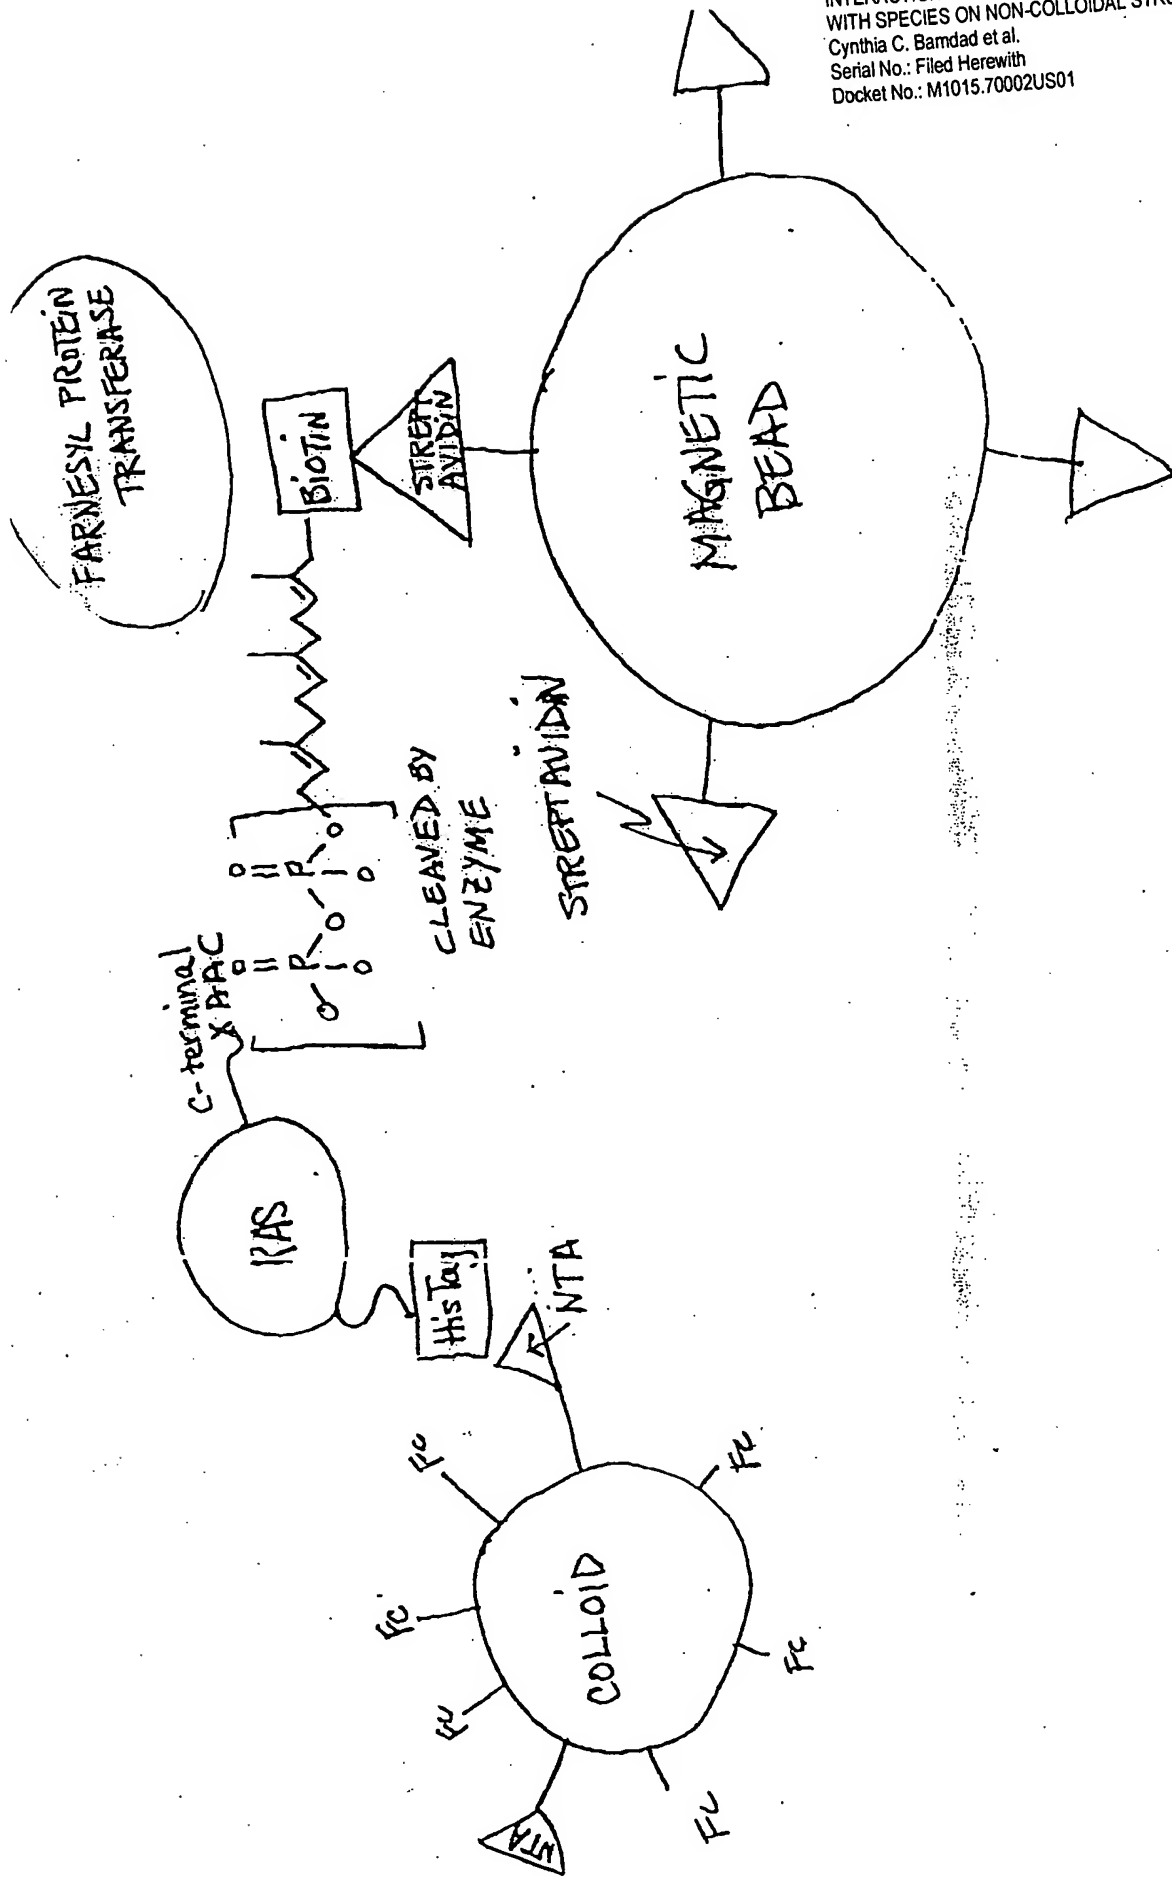 WITH SPECIES ON NON-COLLOIDAL
Cynthia C. Bamdad et al.
Serial No.: Filed Herewith
Docket No.: M1015.70002US01
FARNESYL PROTEIN
TRANSFERASE
BIOTIN
STREPT
AVIDIN
MAGNETIC
BEAD
STREPTAVIDIN
CLEAVED BY
ENZYME
C-terminal
XAAC
O
O
P
P
O
O
O
O
O
RAS
HisTag
NTA
COLLOID
NTA
Fc
Fc
Fc
Fc
Fc
Fc